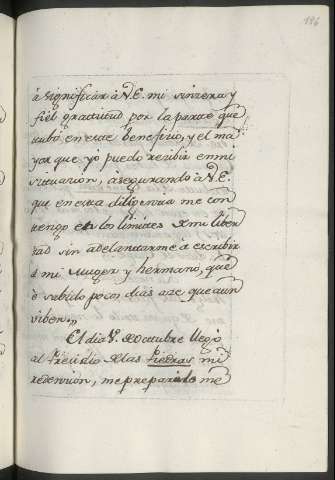 196
à significar à V.E. mi sinzera y
fiel gratitud por la parte que
tubo en este beneficio, y el ma
yor que yó puedo recibir en mi
situación, asegurando à V.E.
que en esta diligencia me con
tengo en los limites de mi liber
tad sin adelantarme à escribir
à mi Muger y hermano, que
è sabido pocos dias aze que aun
viben.
El dia de Octubre llegó
al Presidio de las Piedras mi
redención, me preparé de